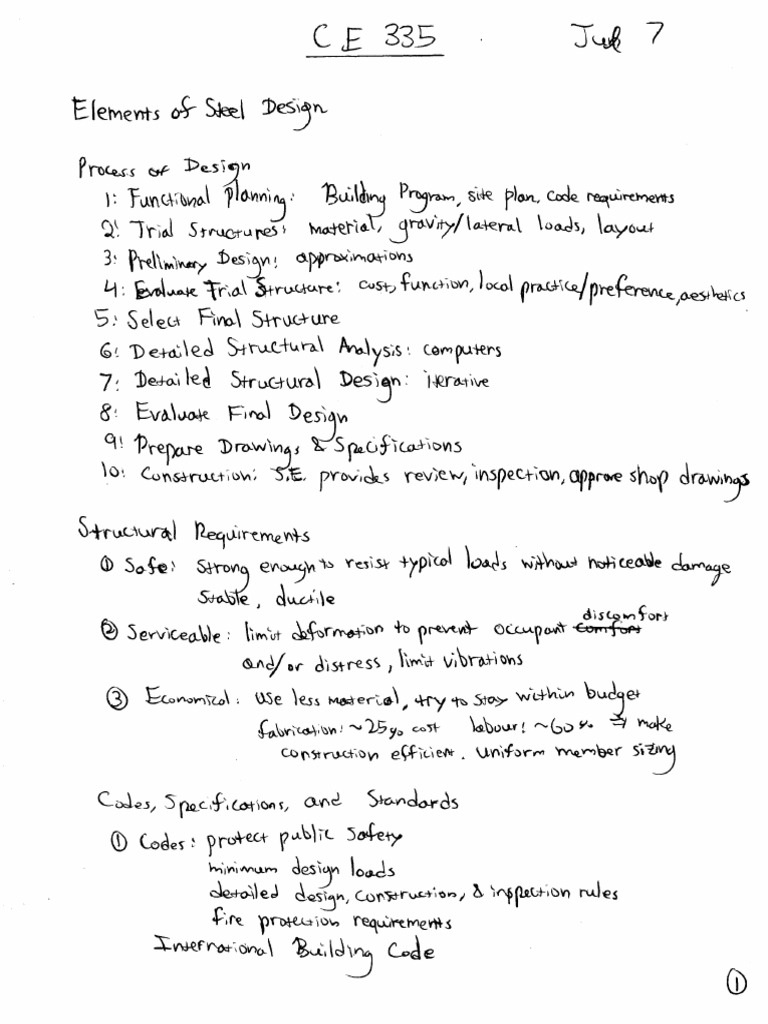 CE 335
July 7
Elements of Steel Design
Process of Design
1: Functional Planning: Building Program, site plan, code requirements
2: Trial Structures: material, gravity/lateral loads, layout
3: Preliminary Design: approximations
4: Evaluate Trial Structure: cost, function, local practice/preference, aesthetics
5: Select Final Structure
6: Detailed Structural Analysis: computers
7: Detailed Structural Design: iterative
8: Evaluate Final Design
9: Prepare Drawings & Specifications
10: Construction: S.E. provides review, inspection, approve shop drawings
Structural Requirements
① Safe: Strong enough to resist typical loads without noticeable damage
Stable, ductile
② Serviceable: limit deformation to prevent occupant comfort discomfort
and/or distress, limit vibrations
③ Economical: Use less material, try to stay within budget
fabrication: ~25% cost labour: ~60% ⇒ make
construction efficient. Uniform member sizing
Codes, Specifications, and Standards
① Codes: protect public safety
minimum design loads
detailed design, construction, & inspection rules
fire protection requirements
International Building Code
①